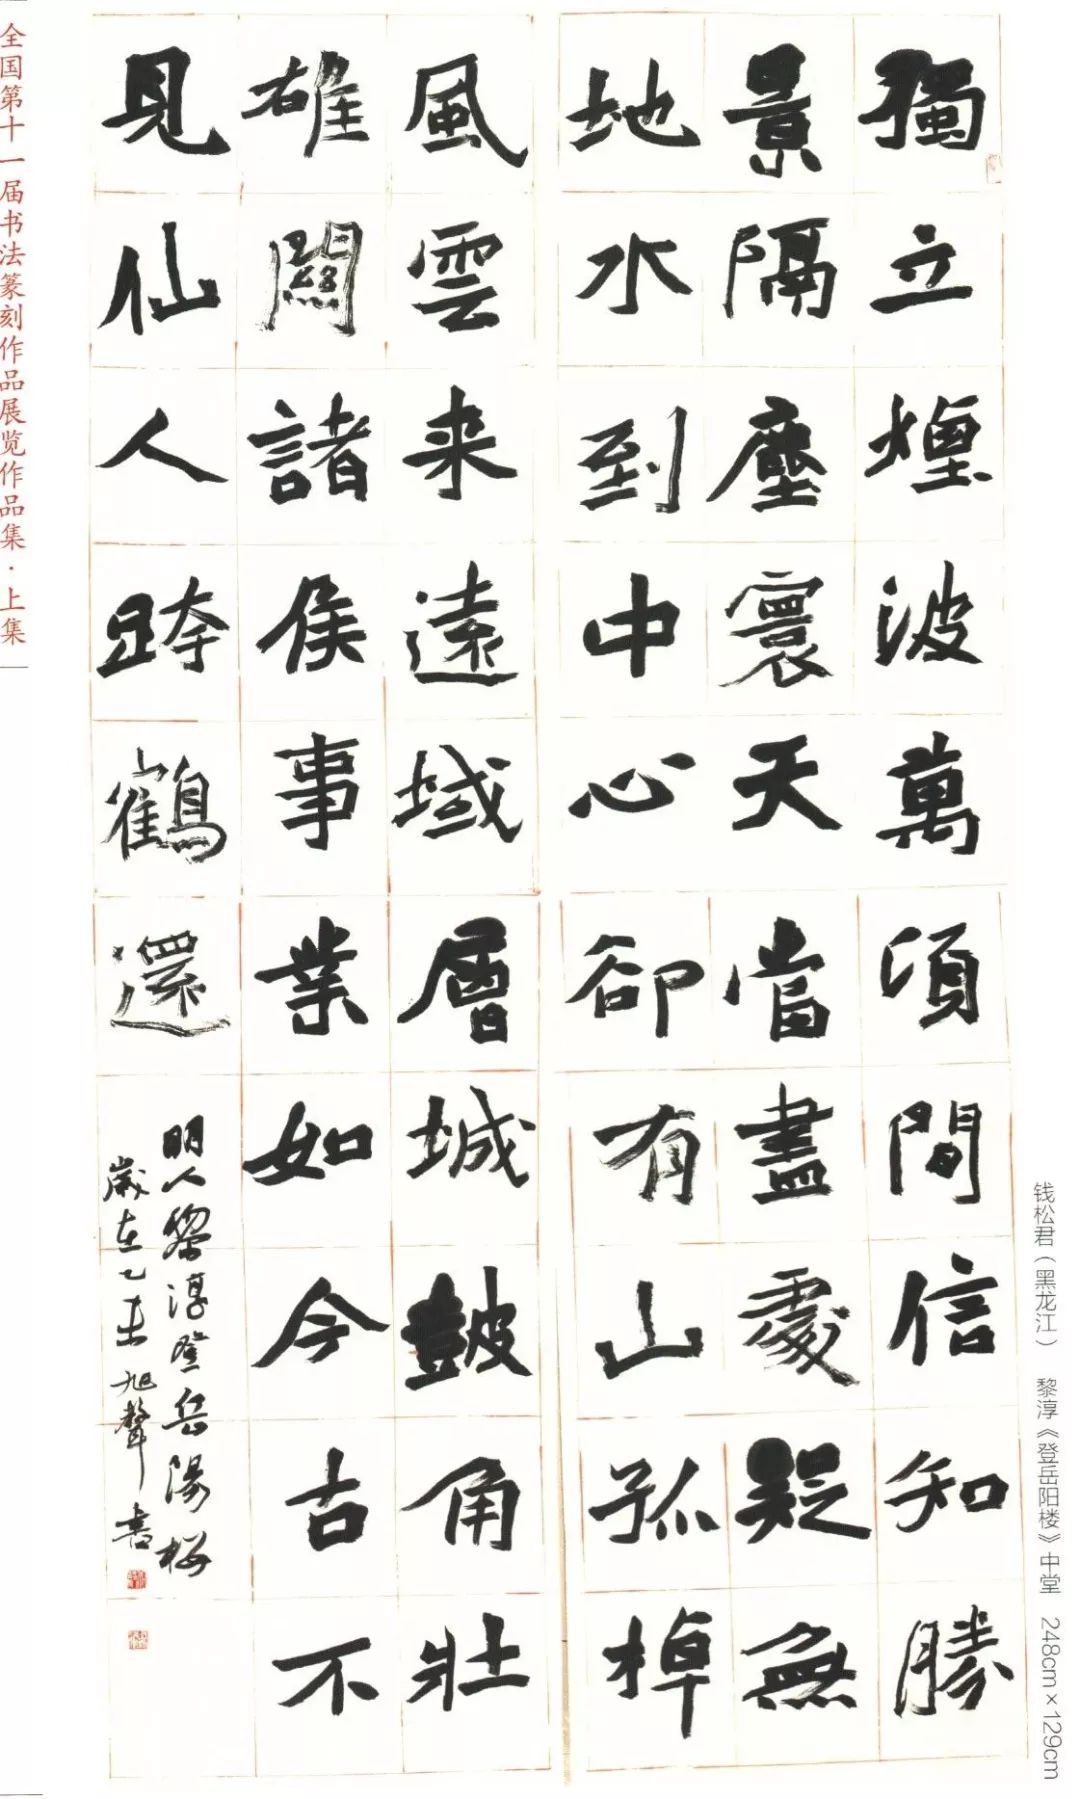 獨立煙波萬頃間信知勝
景隔塵寰天當盡處疑無
地水到中心卻有山孤棹
風雲来遠域層城鼓角壯
雄關諸侯事業如今古不
見仙人跨鶴還
明人黎淳登岳陽樓
歲在乙未旭聲書
全国第十一届书法篆刻作品展览作品集·上集
钱松君（黑龙江） 黎淳《登岳阳楼》中堂 248cm×129cm